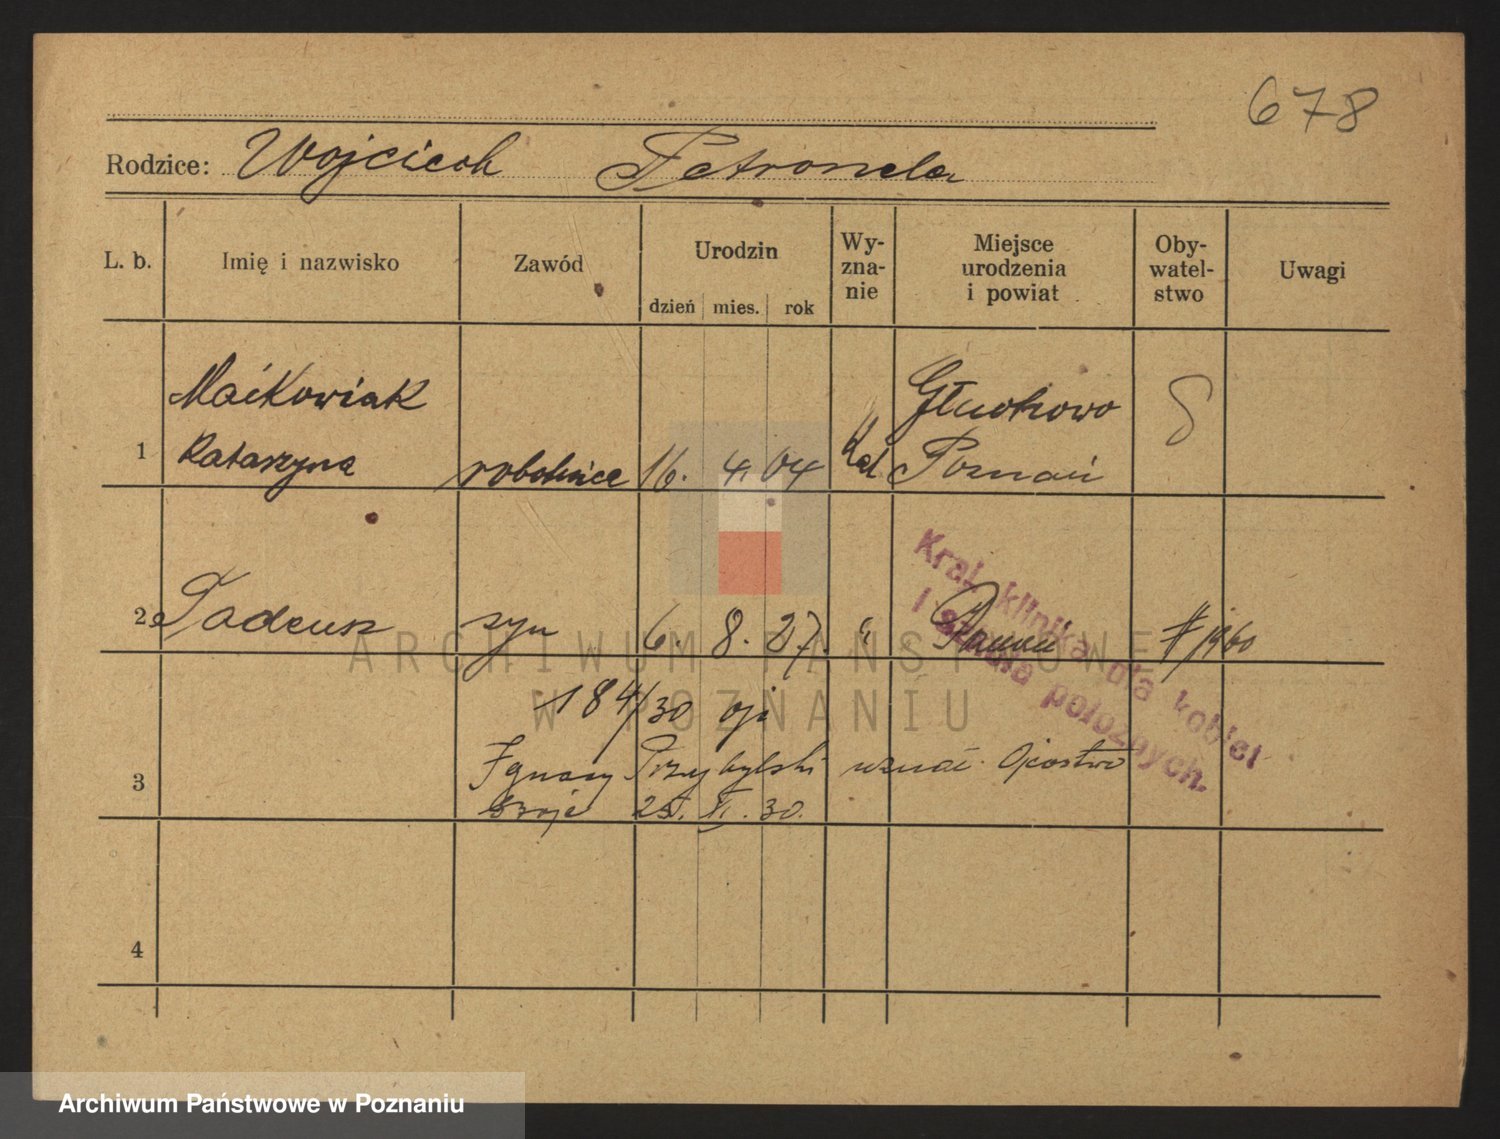 678
Rodzice: Wojciech Petronela
L. b. Imię i nazwisko Zawód Urodzin dzień mies. rok Wy-zna-nie Miejsce urodzenia i powiat Oby-watel-stwo Uwagi
Maćkowiak Głuchowo
1 Katarzyna robotnica 16. 4. 04 Kat. Poznań
2 Tadeusz syn 6. 8. 27. " Poznań
Kraj. klinika dla kobiet
i szkoła położnych.
184/30
3 Ignacy Przybylski uznał Ojcostwo
swoje 25. XI. 30.
4
ARCHIWUM PAŃSTWOWE
W POZNANIU
Archiwum Państwowe w Poznaniu